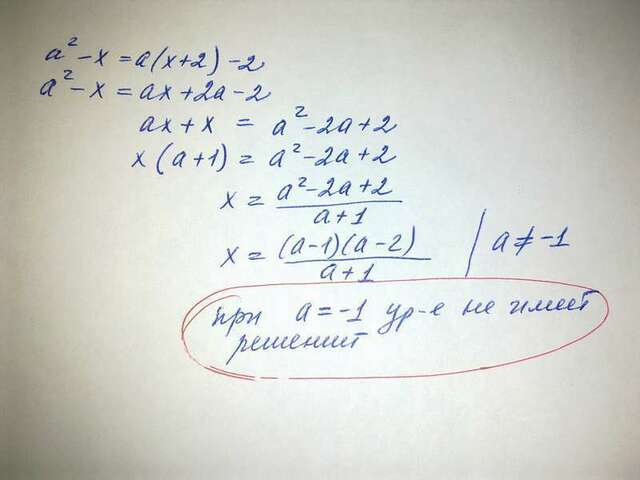 a² - x = a(x+2) - 2
a² - x = ax + 2a - 2
ax + x = a² - 2a + 2
x(a+1) = a² - 2a + 2
x = (a² - 2a + 2)/(a+1)
x = ((a-1)(a-2))/(a+1) | a ≠ -1
при a = -1 ур-е не имеет
решений